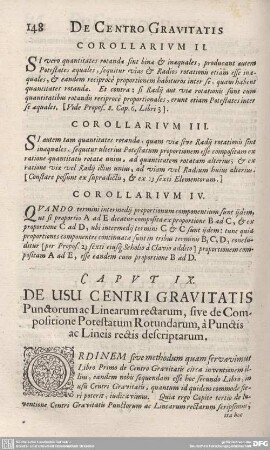 148 DE CENTRO GRAVITATIS
COROLLARIVM II.
SI vero quantitates rotanda sint bina & inaquales, producant autem
Potestates aquales, sequitur vias & Radios rotationis etiam esse ina-
quales, & eandem reciprocè proportionem habituros inter se, quam habent
quantitates rotanda. Et contra: si Radij aut via rotationis sint cum
quantitatibus rotandis reciprocè proportionales, erunt etiam Potestates inter
se aquales. [Vide Propos. 2. Cap. 6, Libri 3].
COROLLARIVM III.
SI autem tam quantitates rotanda, quam via sive Radij rotationis sint
inaquales, sequitur alterius Potestatum proportionem esse compositam ex
ratione quantitatū rotata unius, ad quantitatem rotatam alterius; & ex
ratione via vel Radij ibidem unius, ad viam vel Radium huius alterius.
[Constare possunt ex supradictis, & ex 23 sexti Elementorum.]
COROLLARIVM IV.
QVANDO termini intermedij proportionum componentium sunt ijdem,
ut si proportio A ad E dicatur composita ex proportione B ad C, & ex
proportione C ad D, ubi intermedij termini C & C sunt ijdem: tunc quia
proportiones sunt continuata sub tribus terminis B, C, D, conclu-
ditur [per Propos. 23 sexti eiusq́ Scholia à Clavio addita] proportionem com-
positam A ad E, esse eandem cum proportione B ad D.
CAPVT IX.
DE USU CENTRI GRAVITATIS
Punctorum ac Linearum rectarum, sive de Com-
positione Potestatum Rotundarum, à Punctis
ac Lineis rectis descriptarum.
ORDINEM sive methodum quam servavimus
Libro Primo de Centro Gravitatis circa inventionem il-
lius, eandem nobis sequendam esse hoc secundo Libro, in
usu Centri Gravitatis, quantum id quidem commodè fie-
ri poterit, indicavimus. Quia ergo Capite tertio de In-
ventione Centri Gravitatis Punctorum ac Linearum rectarum scripsimus,
ita hoc